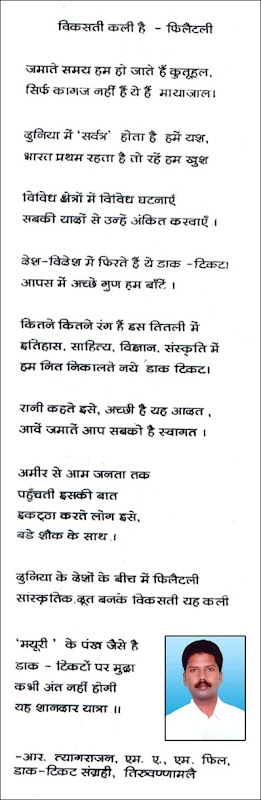 विकसती कली है - फिलैटली
जमाते समय हम हो जाते हैं कुतूहल,
सिर्फ कागज नहीं हैं ये हैं मायाजाल।
दुनिया में 'सर्वत्र' होता है हमें यश,
भारत प्रथम रहता है तो रहें हम खुश
विविध क्षेत्रों में विविध घटनाएँ
सबकी यादों से उन्हें अंकित करवाएँ ।
देश-विदेश में फिरते हैं ये डाक -टिकट।
आपस में अच्छे गुण हम बाँटें ।
कितने कितने रंग हैं इस तितली में
इतिहास, साहित्य, विज्ञान, संस्कृति में
हम नित निकालते नये डाक टिकट।
रानी कहते इसे, अच्छी है यह आदत ,
आवें जमातें आप सबको है स्वागत ।
अमीर से आम जनता तक
पहुँचती इसकी बात
इकट्ठा करते लोग इसे,
बडे शौक के साथ ।
दुनिया के देशों के बीच में फिलैटली
सांस्कृतिक दूत बनके विकसती यह कली
'मयूरी ' के पंख जैसे है
डाक - टिकटों पर मुद्रा
कभी अंत नहीं होगी
यह शानदार यात्रा ॥
-आर. त्यागराजन, एम. ए., एम. फिल,
डाक-टिकट संग्रही, तिरुवण्णामलै